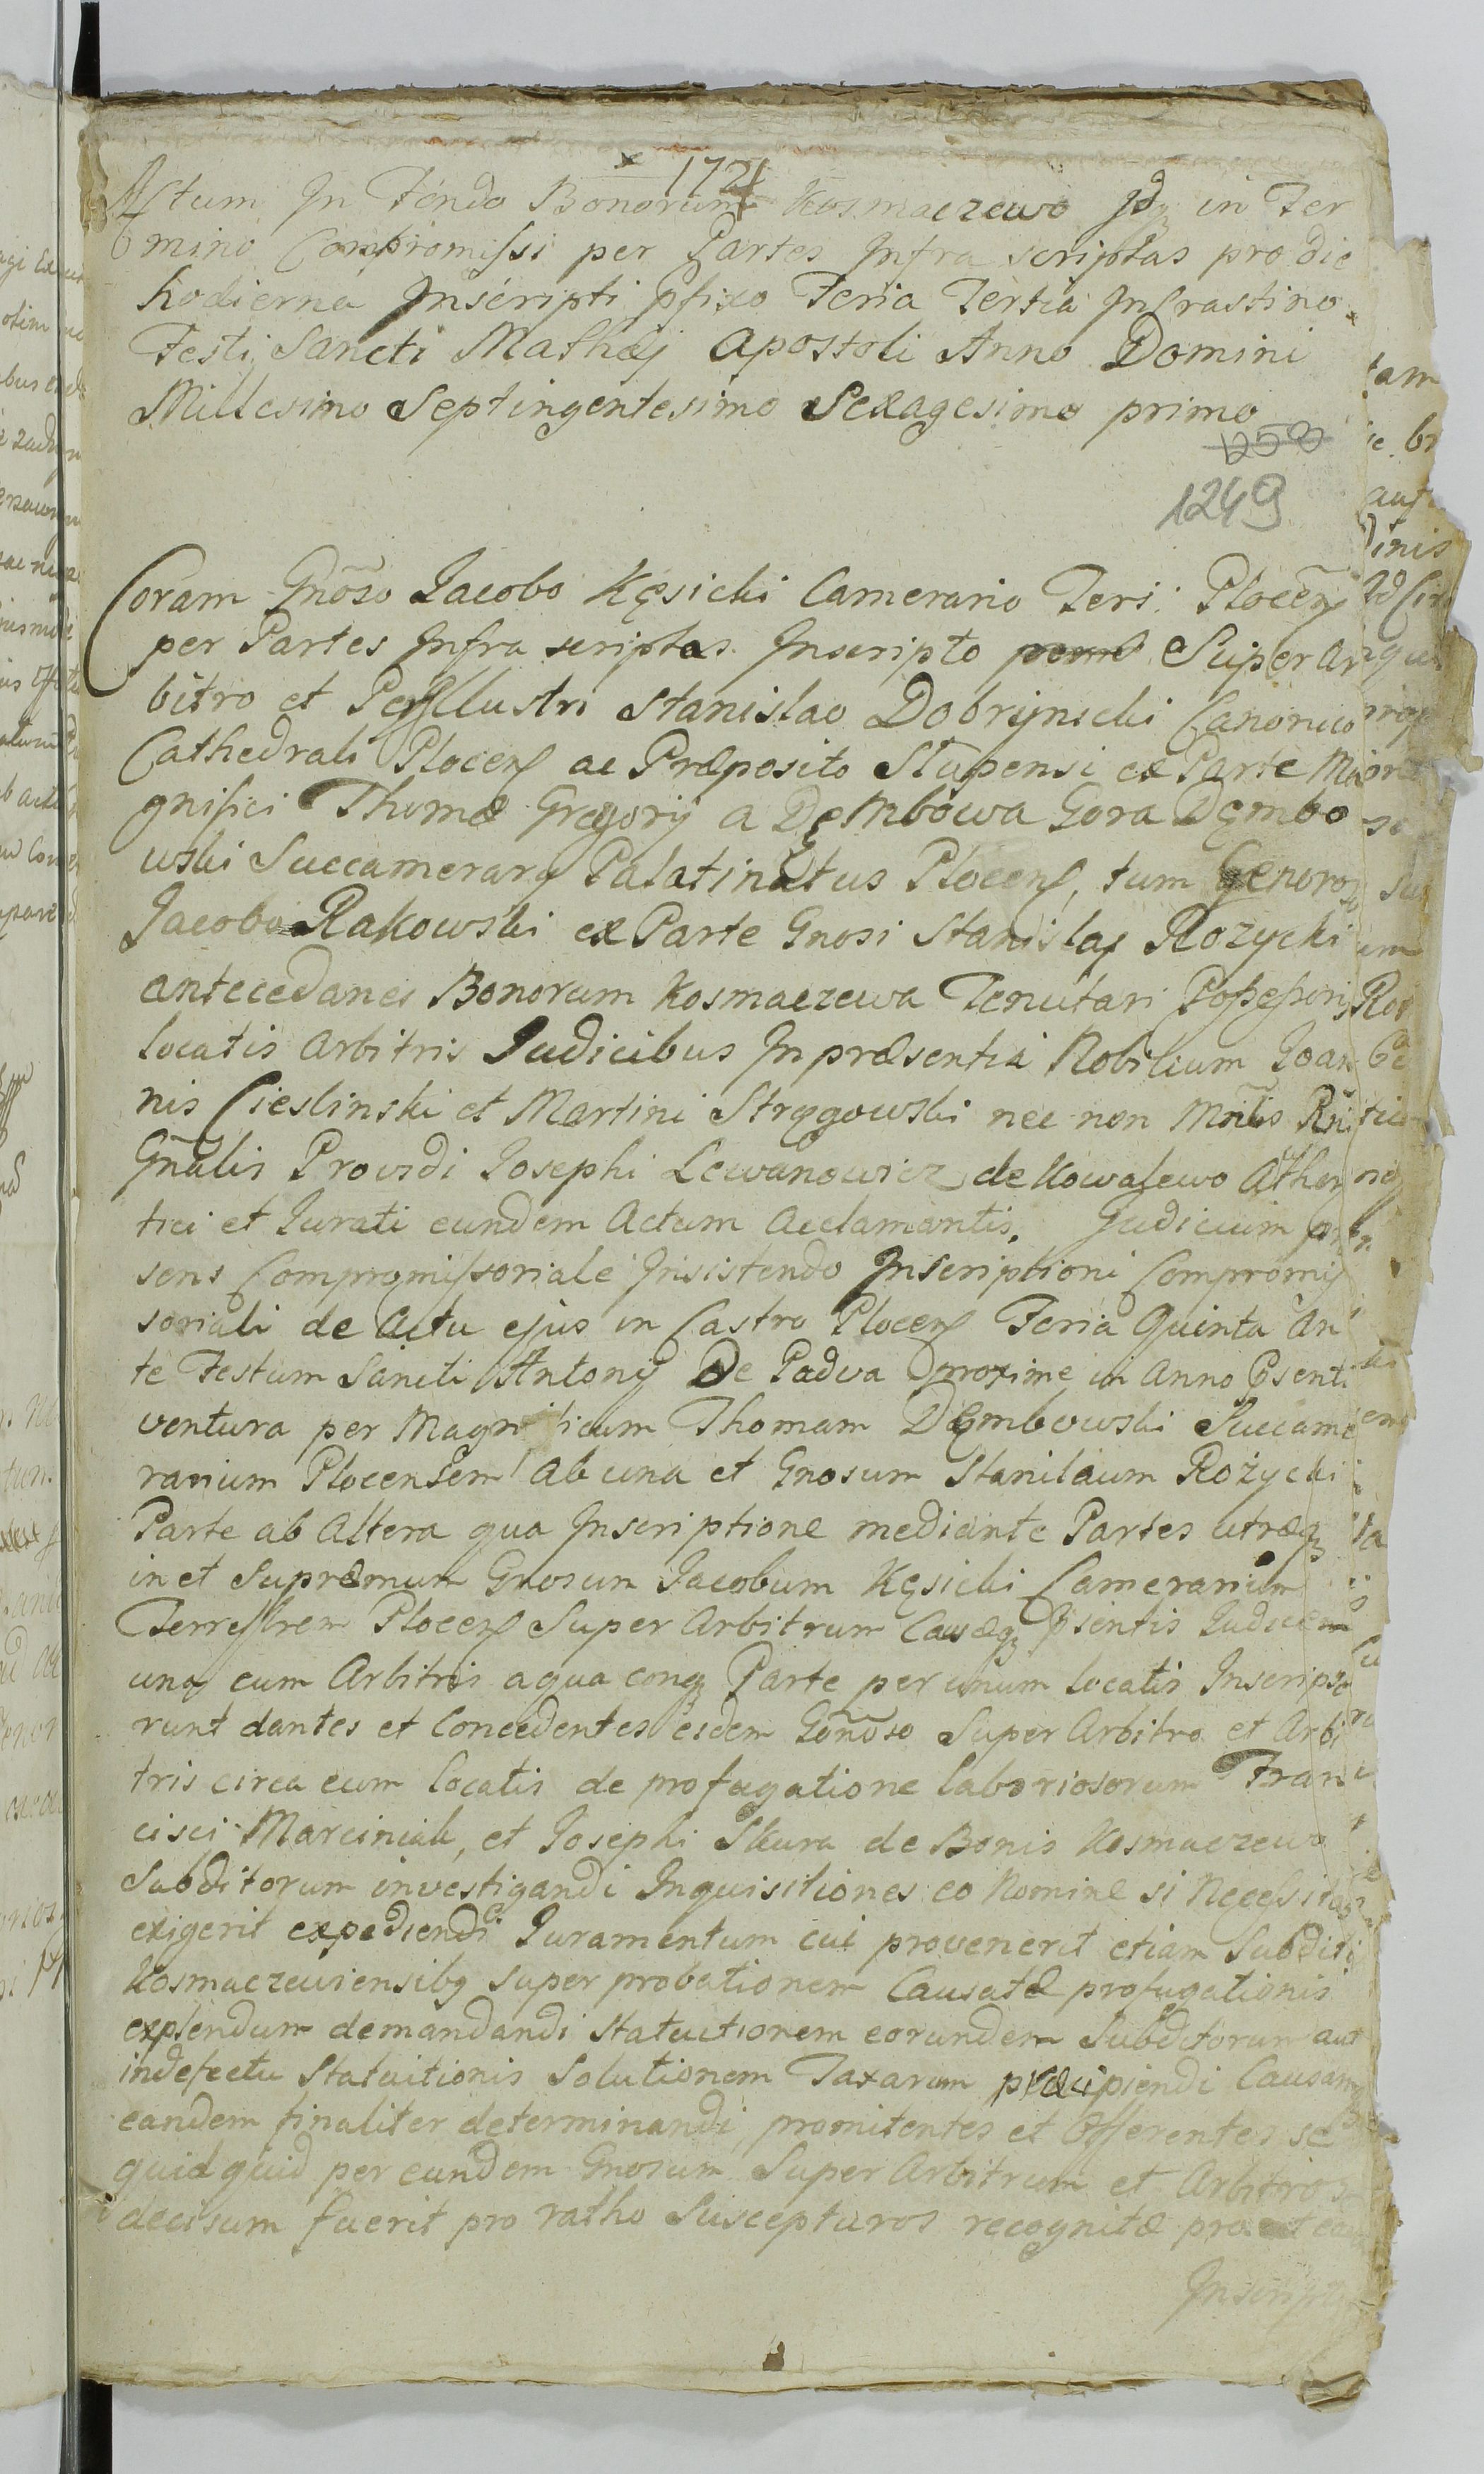 1721
Actum In Fundo Bonorum Kosmaczewo Idq in Ter
mino Compromissi per Partes Infra scriptas pro die
hodierna Inscripti pfixo Feria Tertia In Crastino
Festi Sancti Mathæj Apostoli Anno Domini
Millesimo Septingentesimo Sexagesimo primo
1258
1249
Coram Gnõso Jacobo Kęsicki Camerario Ters: Plocen̄
per Partes Infra scriptas Inscripto Super Ar
bitro et PerIllustri Stanislao Dobrijnicki Canonico
Cathedrali Plocen ac Præposito Stupensi ex Parte Ma
gnifici Thomæ Gregorij a Dęmbowa Gora Dęmbo
wski Succamerarij Palatinatus Plocen, tum Generoso
Jacobo Rakowski ex Parte Gnosi Stanislaj Rozycki
antecedanei Bonorum Kosmaczewa Tenutari Possessoris
locatis Arbitris Judicibus In præsentia Nobilium Joan
nis Cieslinski et Martini Strzgowski nec non Mnlis Rñi
Gñalis Providi Josephi Lewanowicz de Kowalewo Athen
tici et Jurati eundem Actum Acclamantis. Judicium præ
sens Compromissoriale Insistendo Inscriptioni Compromis
soriali de Actu ejus in Castro Plocen Feria Quinta An
te Festum Sancti Antonij De Padva proxime in Anno Psenti
ventura per Magnificum Thomam Dęmbowski Succame
rarium Plocensem ab una et Gnosum Stanilaum Rożycki
Parte ab Altera qua Inscriptione mediante Partes utræq
in et Supræmum Gnosum Jacobum Kęsicki Camerarium
Terrestrem Plocen Super Arbitrum Causæq Psentis Judicem
una cum Arbitris aqua conq Parte per unum locatis Inscripse
runt dantes et Concedentes eidem Gonoso Super Arbitro et Arbi
tris circa eum locatis de profugatione laboriosorum Fran
cisci Marciniak, et Josephi Skura de Bonis Kosmaczewo
Subditorum investigandi Inquisitiones eo Nomine si Necessitas
exigerit expediendi Juramentum cui provenerit etiam Subditis
Kosmaczeviensibq super probationem Causatæ profugationis
explendum demandandi Statuitionem eorundem Subditorum aut
indefectu Statuitionis Solutionem Taxarum præcipiendi Causamq
eandem finaliter determinandi, promitentes et Offerentes se
quidquid per eundem Gnosum Super Arbitrum et Arbitros
decisum fuerit pro ratho Suscepturos recognitæ prout
Inscript